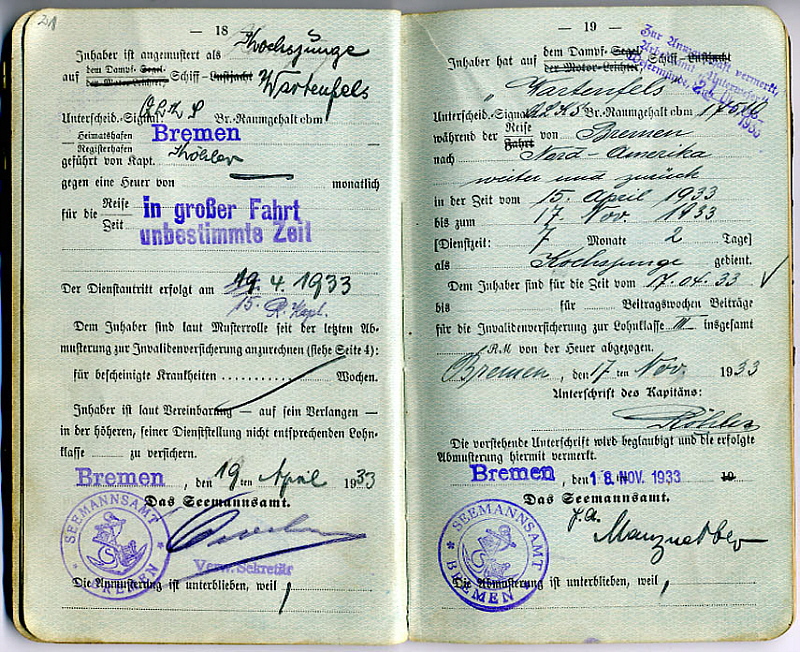 — 18 —
Inhaber ist angemustert als Kochsjunge
auf dem Dampf-Segel- Schiff-Lustjacht Wartenfels
dem Motor-Leichter,
Unterscheid.-Signal Br.-Raumgehalt cbm
Heimatshafen
Registerhafen Bremen
geführt von Kapt. Köhler
gegen eine Heuer von — monatlich
für die Reise
Zeit
in großer Fahrt
unbestimmte Zeit
Der Dienstantritt erfolgt am 19. 4. 1933
15.
Dem Inhaber sind laut Musterrolle seit der letzten Ab-
musterung zur Invalidenversicherung anzurechnen (siehe Seite 4):
für bescheinigte Krankheiten .......... Wochen.
Inhaber ist laut Vereinbarung — auf sein Verlangen —
in der höheren, seiner Dienststellung nicht entsprechenden Lohn-
klasse zu versichern.
Bremen, den 19ten April 1933
Das Seemannsamt.
SEEMANNSAMT BREMEN
Verw. Sekretär
Die Anmusterung ist unterblieben, weil
— 19 —
Zur Anmusterung vermerkt,
1933
Inhaber hat auf dem Dampf-Segel- Schiff-Lustjacht
der Motor-Leichter,
„Wartenfels
Unterscheid.-Signal Br.-Raumgehalt cbm
während der Reise
Fahrt von Bremen
nach Nord-Amerika
weiter und zurück
in der Zeit vom 15. April 1933
bis zum 17. Nov. 1933
[Dienstzeit: 7 Monate 2 Tage]
als Kochsjunge gedient.
Dem Inhaber sind für die Zeit vom 17.04.33
bis für Beitragswochen Beiträge
für die Invalidenversicherung zur Lohnklasse III insgesamt
RM von der Heuer abgezogen.
Bremen, den 17ten Nov. 1933
Unterschrift des Kapitäns:
Köhler
Die vorstehende Unterschrift wird beglaubigt und die erfolgte
Abmusterung hiermit vermerkt.
Bremen, den 18. NOV. 1933 19
Das Seemannsamt.
J.A.
SEEMANNSAMT BREMEN
Die Abmusterung ist unterblieben, weil